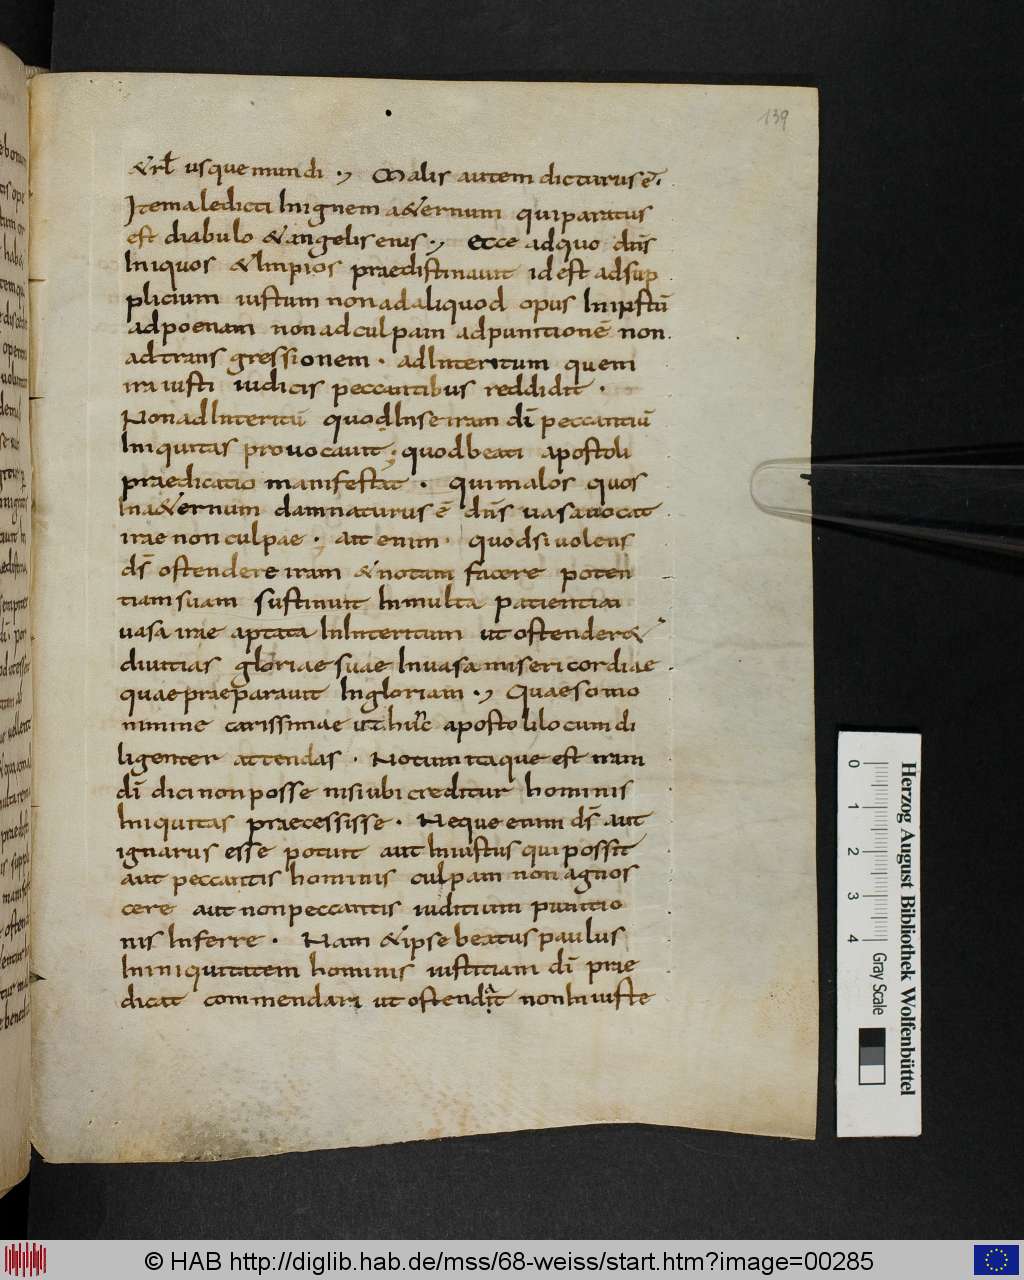 139
&rł usque mundi ·, Malis autem dicturus ē·
Ite maledicti In ignem a&ernum qui paratus
est diabulo & angelis eius ·, ecce ad quo dn̄s
Iniquos & Impios praedistinauit id est ad sup
plicium iustum non ad aliquod opus Iniustū
ad poenam non ad culpam ad punitionē non
ad trans gressionem · ad Interitum quem
ira iusti iudicis peccantibus reddidit ·
Non ad Interitū quod In se iram dī peccantiū
Iniquitas prouocauit; quod beati apostoli
praedicatio manifestat · qui malos quos
In a&ernum damnaturus ē dn̄s uasa uocat
irae non culpae · ait enim · quod si uolens
ds̄ ostendere iram & notam facere poten
tiam suam sustinuit In multa patientia
uasa irae aptata In Interitum ut ostender&
diuitias gloriae suae In uasa misericordiae ·
quae praeparauit In gloriam ·, Quaeso mo
nimine carissimae ut apostoli locum di
ligenter attendas · Notum itaque est iram
dī dici non posse nisi ubi creditur hominis
Iniquitas praecessisse · Neque enim ds̄ aut
ignarus esse potuit aut Iniustus qui possit
aut peccantis hominis culpam non agnos
cere aut non peccantis iuditium punitio
nis Inferre · Nam & ipse beatus paulus
In iniquitatem hominis iustitiam dī prae
dicat commendari ut ostendat non Iniuste
0 1 2 3 4
Herzog August Bibliothek Wolfenbüttel
Gray Scale
© HAB http://diglib.hab.de/mss/68-weiss/start.htm?image=00285